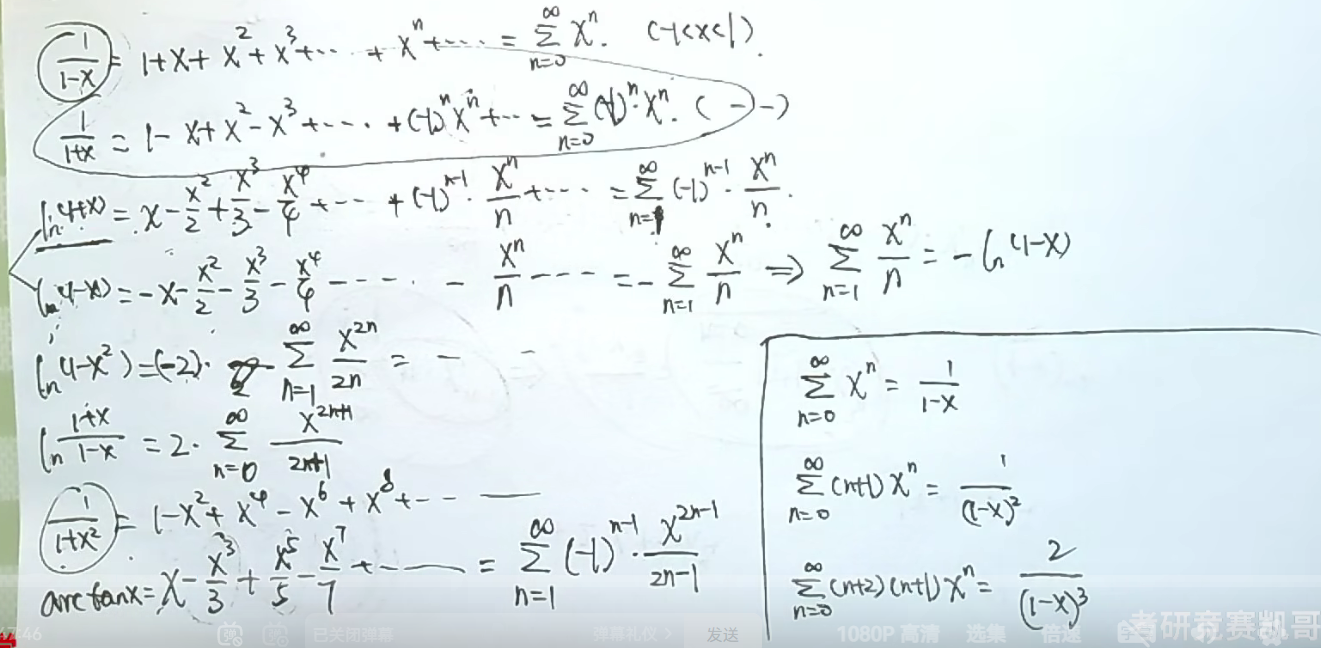 1/(1-x) = 1+x+x^2+x^3+⋯+x^n+⋯ = ∑_{n=0}^{∞} x^n. (-1<x<1).
1/(1+x) = 1-x+x^2-x^3+⋯+(-1)^n x^n+⋯ = ∑_{n=0}^{∞} (-1)^n·x^n. (--)
ln(1+x) = x-x^2/2+x^3/3-x^4/4+⋯+(-1)^{n-1}·x^n/n+⋯ = ∑_{n=1}^{∞} (-1)^{n-1}·x^n/n.
ln(1-x) = -x-x^2/2-x^3/3-x^4/4-⋯-x^n/n-⋯ = -∑_{n=1}^{∞} x^n/n ⇒ ∑_{n=1}^{∞} x^n/n = -ln(1-x)
ln(1-x^2) = (-2)·∑_{n=1}^{∞} x^{2n}/2n = - -
ln (1+x)/(1-x) = 2·∑_{n=0}^{∞} x^{2n+1}/(2n+1)
1/(1+x^2) = 1-x^2+x^4-x^6+x^8+--—
arctanx = x-x^3/3+x^5/5-x^7/7+⋯ = ∑_{n=1}^{∞} (-1)^{n-1}·x^{2n-1}/(2n-1)
∑_{n=0}^{∞} x^n = 1/(1-x)
∑_{n=0}^{∞} (n+1)x^n = 1/(1-x)^2
∑_{n=0}^{∞} (n+2)(n+1)x^n = 2/(1-x)^3
考研竞赛凯哥
7:46 已关闭弹幕 弹幕礼仪 > 发送 1080P 高清 选集 倍速